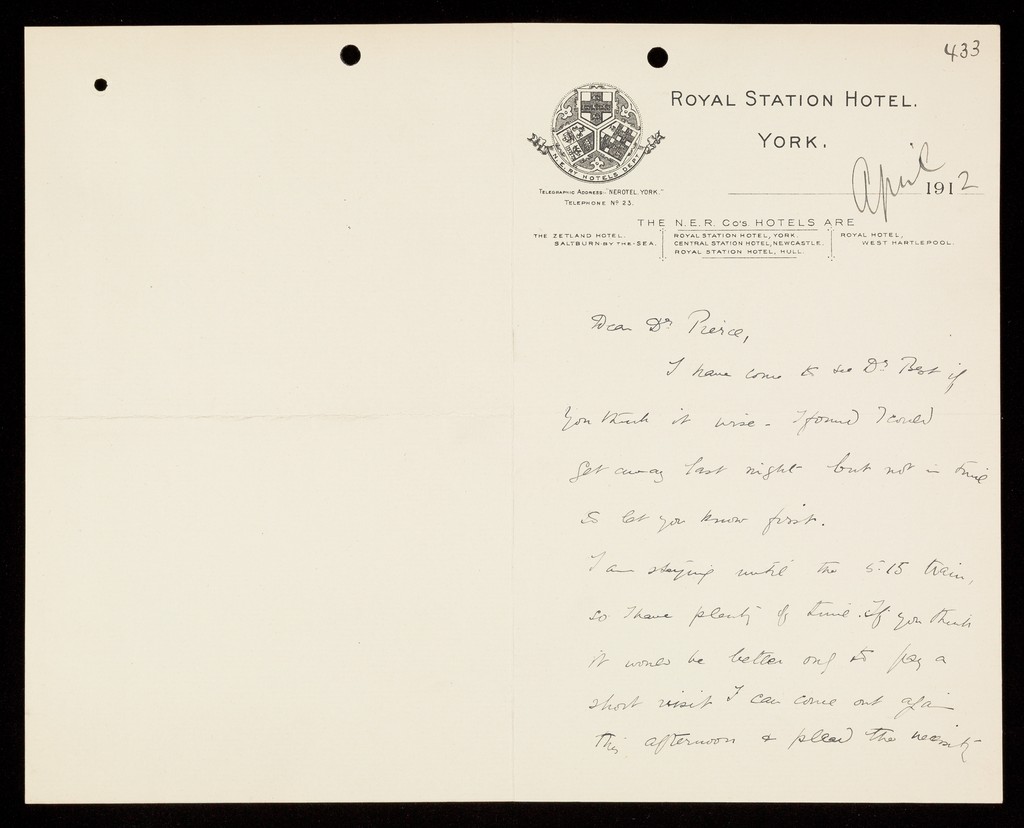 433
ROYAL STATION HOTEL.
YORK.
N.E. RY HOTELS DEPT
TELEGRAPHIC ADDRESS:- "NEROTEL, YORK."
TELEPHONE Nº 23.
April 1912
THE N.E.R. Co's. HOTELS ARE
THE ZETLAND HOTEL,
SALTBURN-BY-THE-SEA.
ROYAL STATION HOTEL, YORK.
CENTRAL STATION HOTEL, NEWCASTLE.
ROYAL STATION HOTEL, HULL.
ROYAL HOTEL,
WEST HARTLEPOOL.
Dear Dr Pierce,
I have come to see Dr Best if
you think it wise. I found I could
get away last night but not in time
to let you know first.
I am staying until the 5.15 train,
so I have plenty of time. If you think
it would be better only to pay a
short visit I can come out again
this afternoon & plead the necessity